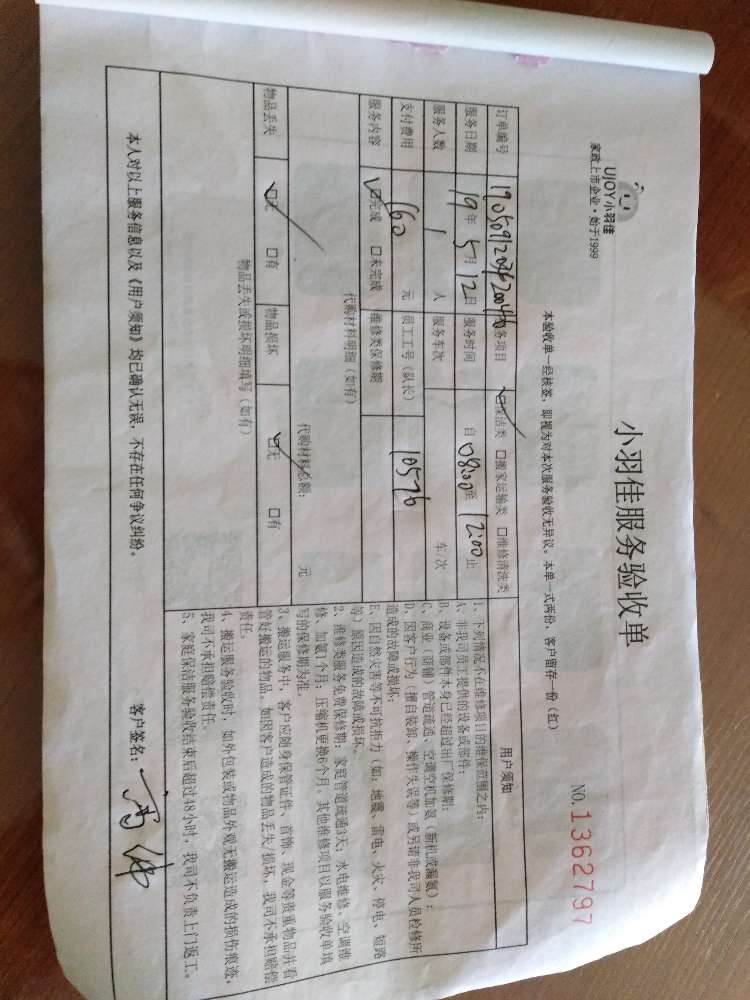 UJOY小羽佳
家政上市企业·始于1999
小羽佳服务验收单
NO. 1362797
本验收单一经核签，即视为对本次服务验收无异议。本单一式两份，客户留存一份（红）
订单编号 服务项目 ☑保洁类 □搬家运输类 □维修清洗类
服务日期 19年5月12日 服务时间 自08:00至12:00止
服务人数 1人 服务车次 车/次
支付费用 160元 员工工号（队长） 10576
服务内容 ☑完成 □未完成 维修类保修期
代购材料明细（如有）
代购材料总额： 元
物品丢失 ☑无 □有 物品损坏 ☑无 □有
物品丢失或损坏明细填写（如有）
用户须知
1、下列情况不在维修项目的维保范围之内：
A、非我司员工提供的设备或部件；
B、设备或部件本身已经超过出厂保修期；
C、商业（商铺）管道疏通、空调空机加氨（新机或漏氨）；
D、因客户行为（擅自装卸、操作失误等）或另请非我司人员检修所
造成的故障或损坏；
E、因自然灾害等不可抗拒力（如：地震、雷电、火灾、停电、短路
等）原因造成的故障或损坏。
2、维修类服务免费保修期：家庭管道疏通3天；水电维修、空调维
修、加氨1个月；压缩机更换6个月。其他维修项目以服务验收单填
写的保修期为准。
3、搬运服务中，客户应随身保管证件、首饰、现金等贵重物品并看
管好搬运的物品。如因客户造成的物品丢失/损坏，我司不承担赔偿
责任。
4、搬运服务验收时，如外包装或物品外观无搬运造成的损伤痕迹，
我司不承担赔偿责任。
5、家庭保洁服务验收结束后超过48小时，我司不负责上门返工。
本人对以上服务信息以及《用户须知》均已确认无误，不存在任何争议纠纷。
客户签名：